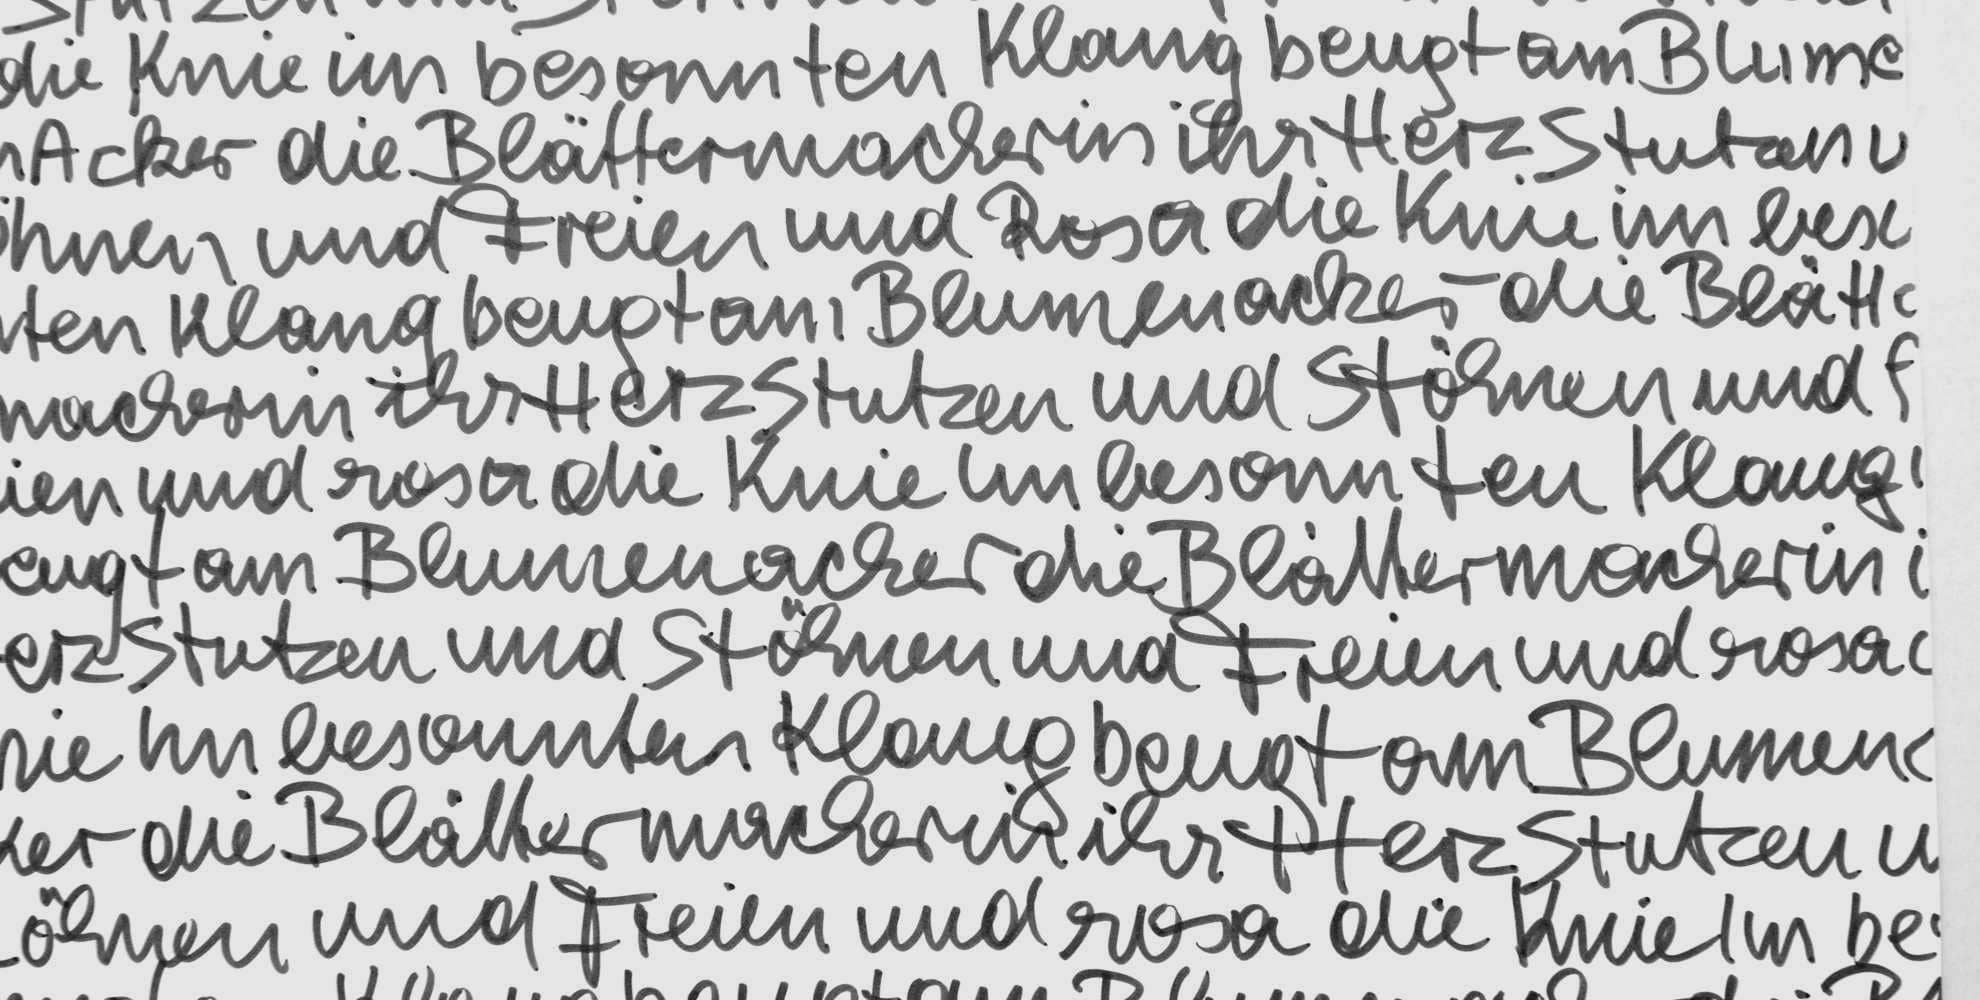 Stutzen und Stöhnen
die Knie im besonnten Klang beugt am Blume
nAcker die Blättermacherin ihr Herz Stutzen u
öhnen und Freien und Rosa die Knie im beso
nten Klang beugt am Blumenacker die Blätte
macherin ihr Herz Stutzen und Stöhnen und F
eien und rosa die Knie Im besonnten Klang
eugt am Blumenacker die Blättermacherin i
erz Stutzen und Stöhnen und Freien und rosa d
nie Im besonnten Klang beugt am Blumena
ker die Blättermacherin ihr Herz Stutzen u
öhnen und Freien und rosa die Knie Im bes
Klang beugt am Blumenacker die Bl